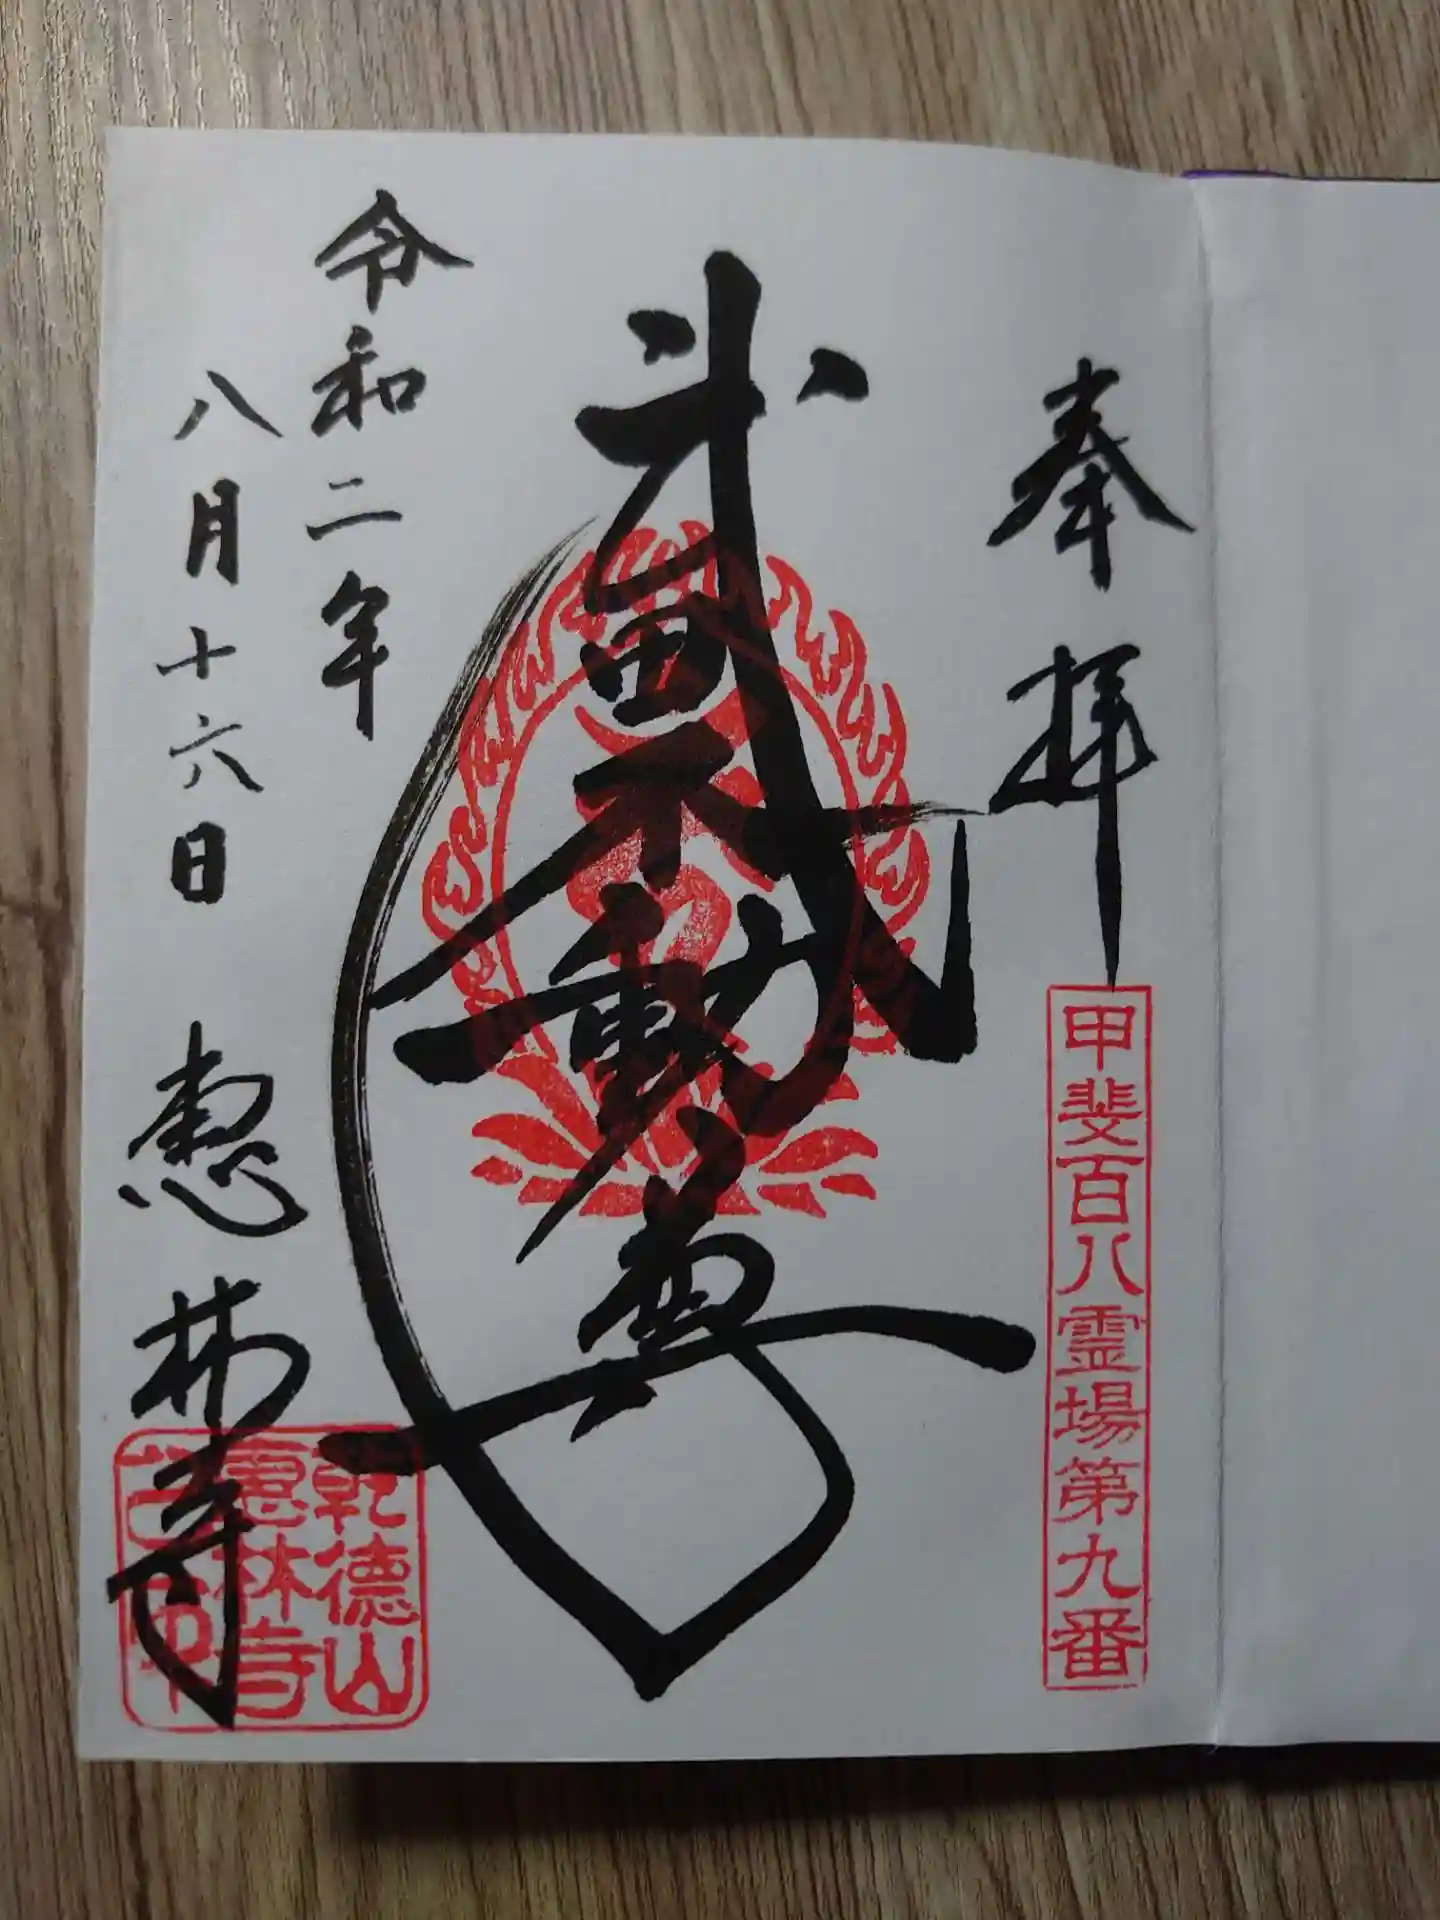 奉拝
甲斐百八霊場第九番
武田不動尊
令和二年
八月十六日 恵林寺
乾徳山
恵林寺